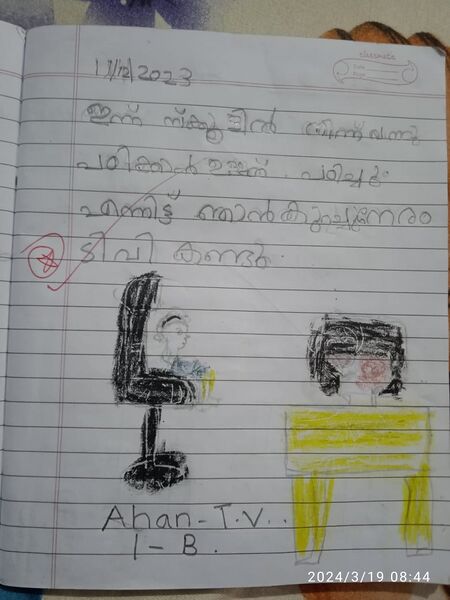 classmate
Date
Page
11/12/2023
ഇന്ന് സ്കൂളിൽ നിന്ന് വന്നു
പഠിക്കാൻ ഉണ്ട്. പഠിച്ചു
എന്നിട്ട് ഞാൻ കുറച്ചുനേരം
ടിവി കണ്ടു.
Ahan-T.V..
1-B.
2024/3/19 08:44